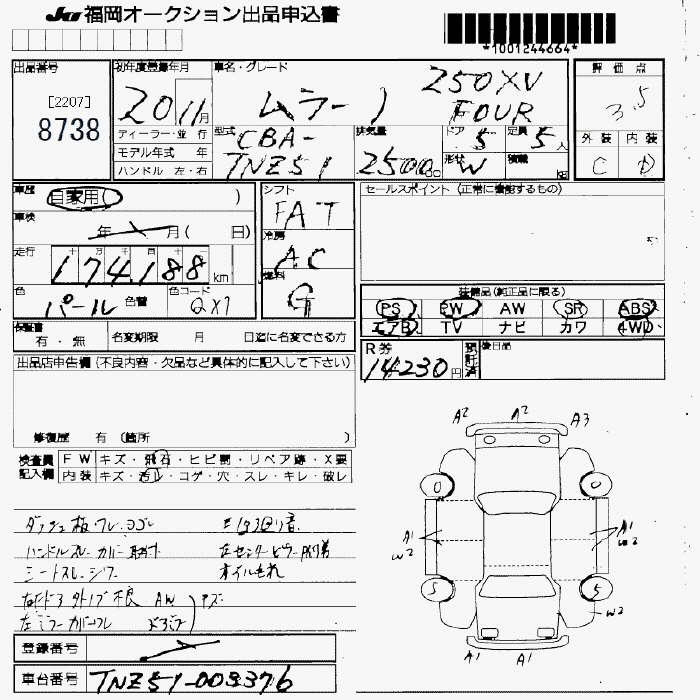 JU 福岡オークション出品申込書
*1001244664*
出品番号
[2207]
8738
初年度登録年月
20 11月
ディーラー・並 行
モデル年式 年
ハンドル 左・右
車名・グレード
ムラーノ
250XV
FOUR
型式
CBA-
TNZ51
排気量
2500cc
ドア 5
定員 5人
形状 W
積載 kg
評 価 点
3.5
外 装 内 装
C D
車歴
自家用( )
車検
年 月( 日)
走行
174,188 km
色
パール 色替
色コード
QX1
シフト
FAT
冷房
AC
燃料
G
セールスポイント (正常に機能するもの)
装備品(純正品に限る)
PS PW AW SR ABS
エアB TV ナビ カワ 4WD
保証書
有・無
名変期限 月 日迄に名変できる方
R券
14230円
預託済
後日品
出品店申告欄 (不良内容・欠品など具体的に記入して下さい)
修復歴 有 (箇所 )
検査員
記入欄
FW キズ・飛石・ヒビ割・リペア跡・X要
内装 キズ・汚れ・コゲ・穴・スレ・キレ・破レ
ダッシュ板・ワレ・ヨゴレ
ハンドルスレ カバー
シートスレ・シワ
オイルもれ
右ドア 外ノブ不良 AW
左ミラーカバー
キズ
A2 A2 A3
0 0
A1 W2
A1 W2
S S
W2
A1 A1
登録番号
車台番号 TNZ51-003376